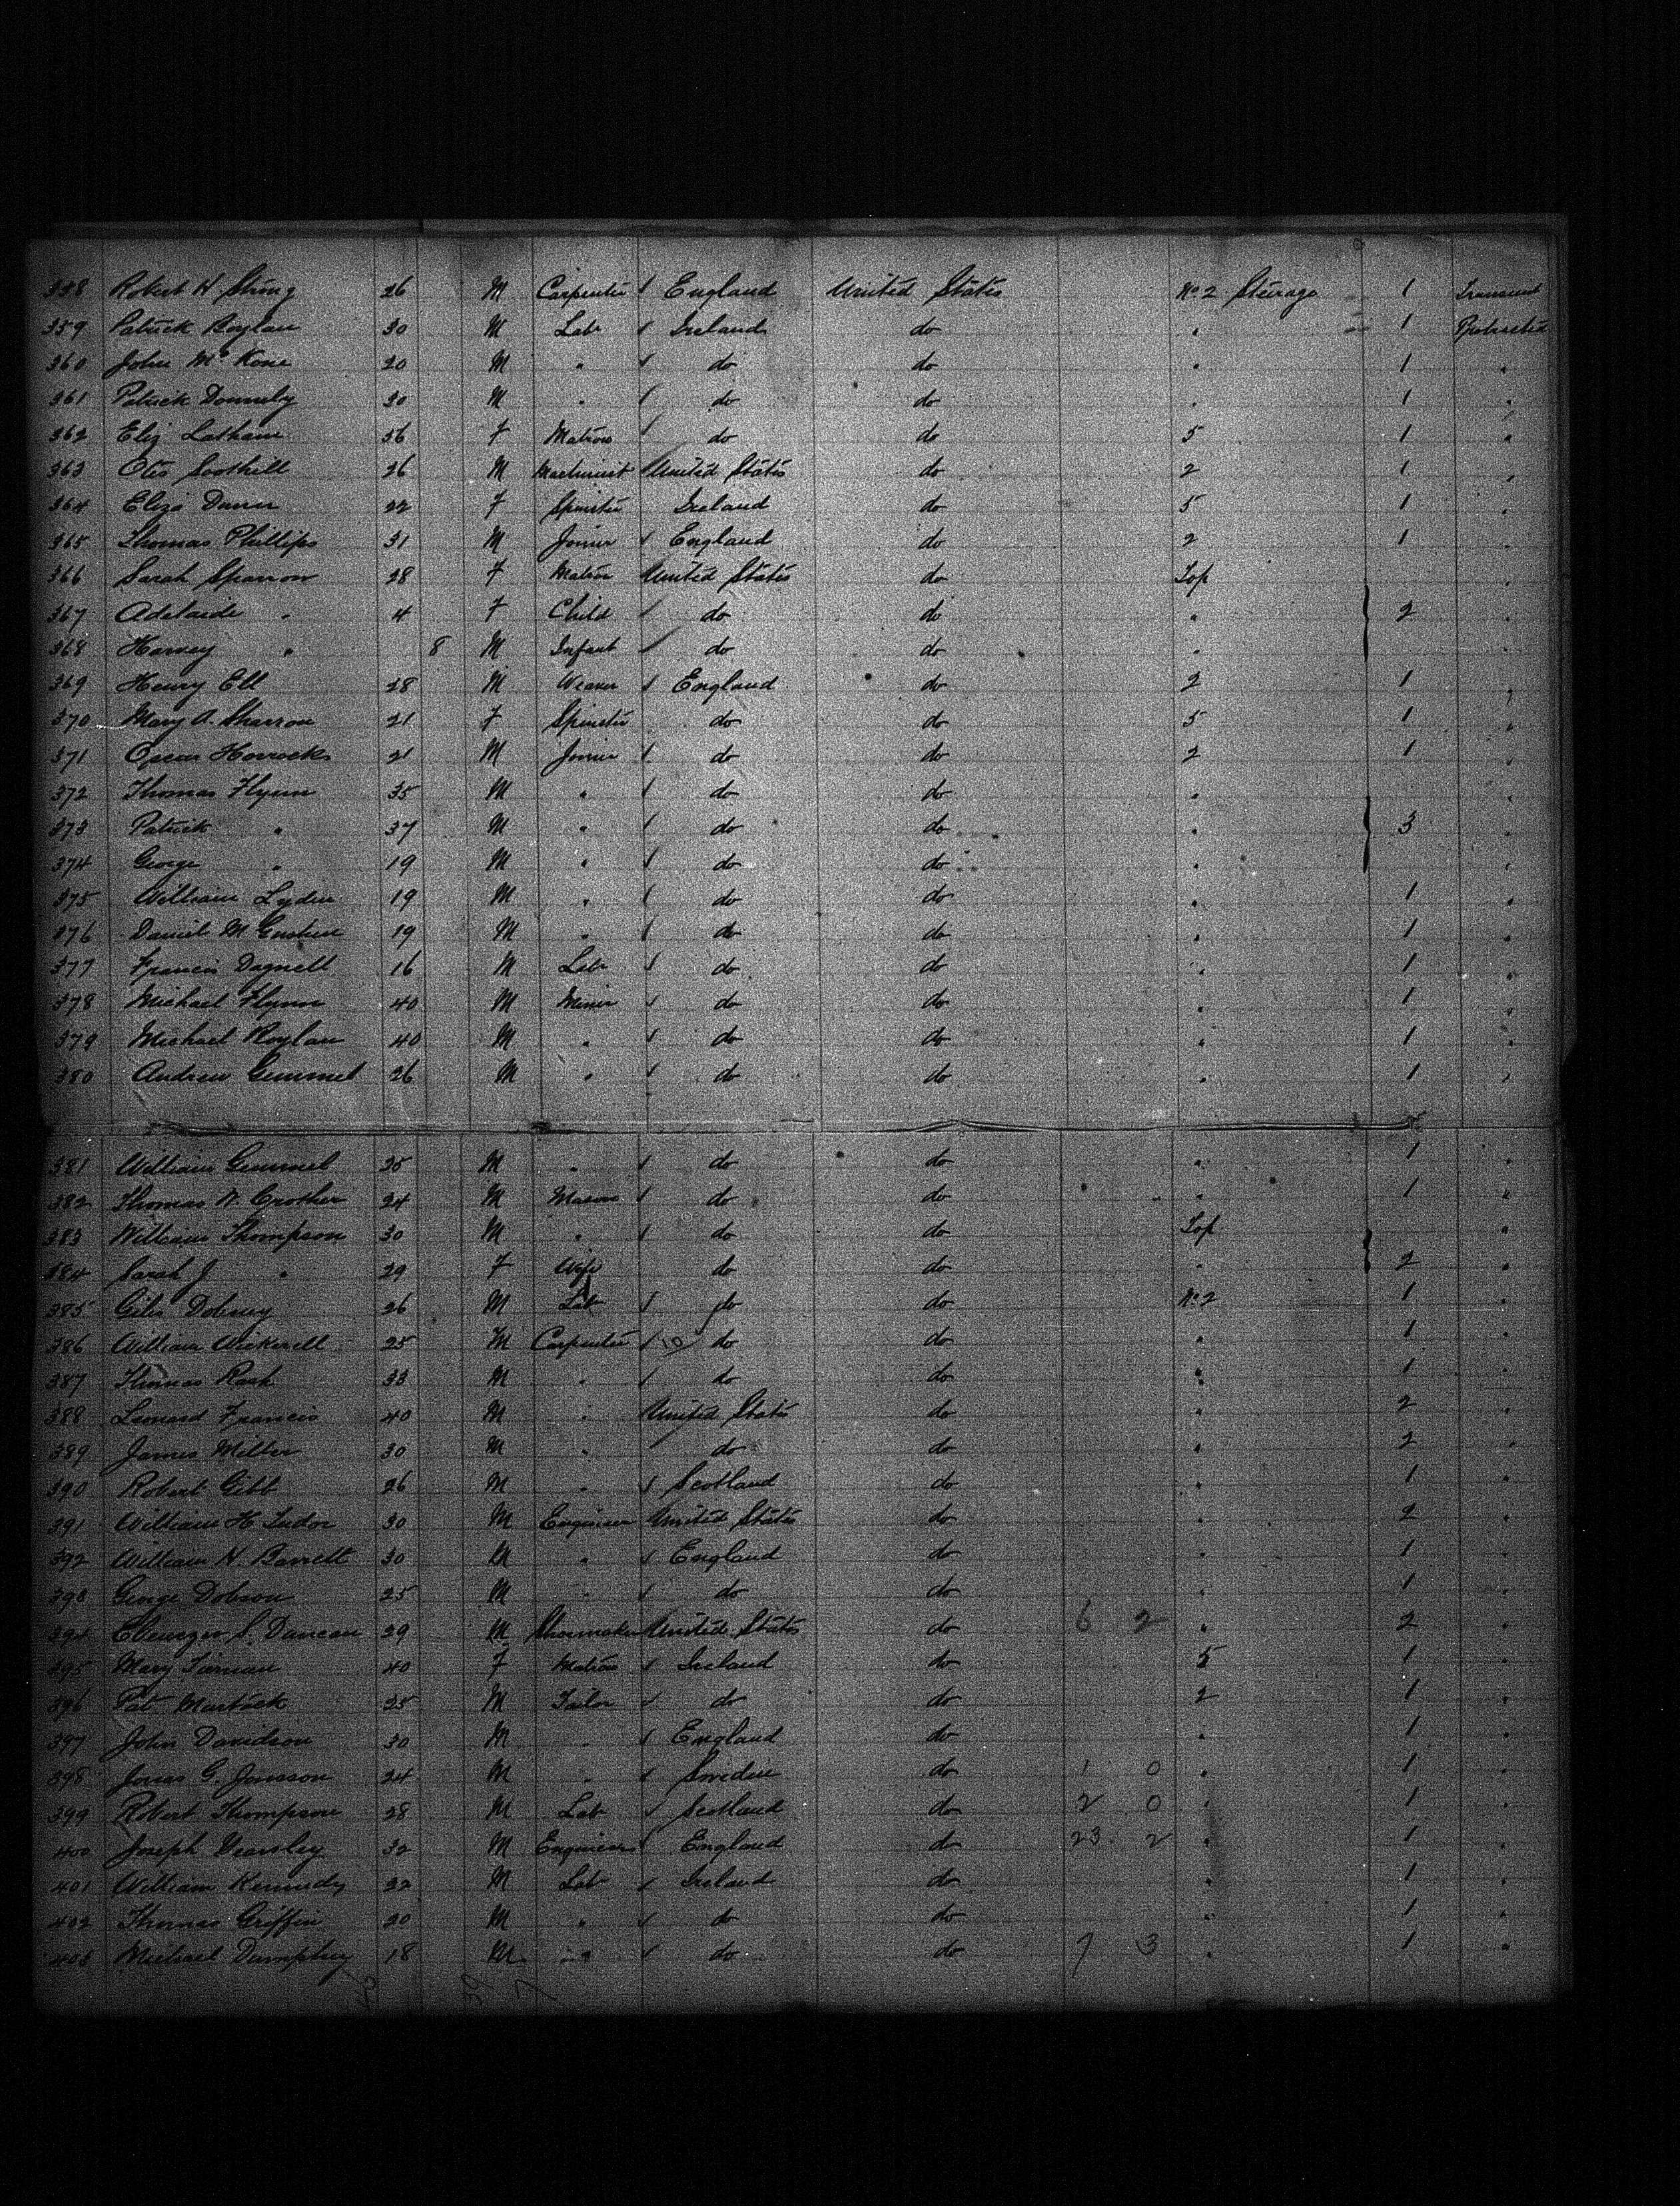 358 Robert H Strong 26 M Carpenter England United States No 2 Steerage 1 Transient
359 Patrick Boylan 30 M Lab Ireland do " 1 Protracted
360 John McKone 20 M " do do " 1 "
361 Patrick 30 M " do do " 1 "
362 Eliz Latham 36 F Matron do do 5 1 "
363 Otis Soothill 26 M Machinist United States do 2 1 "
364 Eliza 22 F Spinster Ireland do 5 1 "
365 Thomas Phillips 31 M Joiner England do 2 1 "
366 Sarah Sparrow 28 F Matron United States do Top "
367 Adelaide " 4 F Child do do " 2 "
368 Harvey " 8 M Infant do do " "
369 Henry Ell 28 M Weaver England do 2 1 "
370 Mary A. Sharron 21 F Spinster do do 5 1 "
371 Oscar Horrocks 21 M Joiner do do 2 1 "
372 Thomas Flynn 35 M " do do " "
373 Patrick " 37 M " do do " 3 "
374 George " 19 M " do do " "
375 William Lydin 19 M " do do " 1 "
376 Daniel 19 M " do do " 1 "
377 Francis Dagnell 16 M Lab do do " 1 "
378 Michael Flynn 40 M Miner do do " 1 "
379 Michael Boylan 40 M " do do " 1 "
380 Andrew Gemmel 26 M " do do " 1 "
381 William Gemmel 25 M " do do " 1 "
382 Thomas W. Crother 24 M Mason do do " 1 "
383 William Thompson 30 M " do do Top "
384 Sarah J " 29 F Wife do do " 2 "
385 Giles Dobney 26 M Lab do do No 2 1 "
386 William Wickerell 25 M Carpenter do do " 1 "
387 Thomas Rash 33 M " do do " 1 "
388 Leonard Francis 40 M " United States do " 2 "
389 James Miller 30 M " do do " 2 "
390 Robert Gibb 26 M " Scotland do " 1 "
391 William H Tudor 30 M Engineer United States do " 2 "
392 William H. Barrett 30 M " England do " 1 "
393 George Dobson 25 M " do do " 1 "
394 Ebenezer S. Duncan 29 M Shoemaker United States do 6 2 " 2 "
395 Mary Tiernan 40 F Matron Ireland do 5 1 "
396 Pat Murtock 25 M Tailor do do 2 1 "
397 John Davidson 30 M " England do " 1 "
398 Jonas G. Jonsson 24 M " Sweden do 1 0 " 1 "
399 Robert Thompson 28 M Lab Scotland do 2 0 " 1 "
400 Joseph Dearsley 32 M Engineers England do 23 2 " 1 "
401 William Kennedy 22 M Lab Ireland do " 1 "
402 Thomas Griffin 20 M " do do " 1 "
403 Michael Dumphey 18 M " do do 7 3 " 1 "
39 7